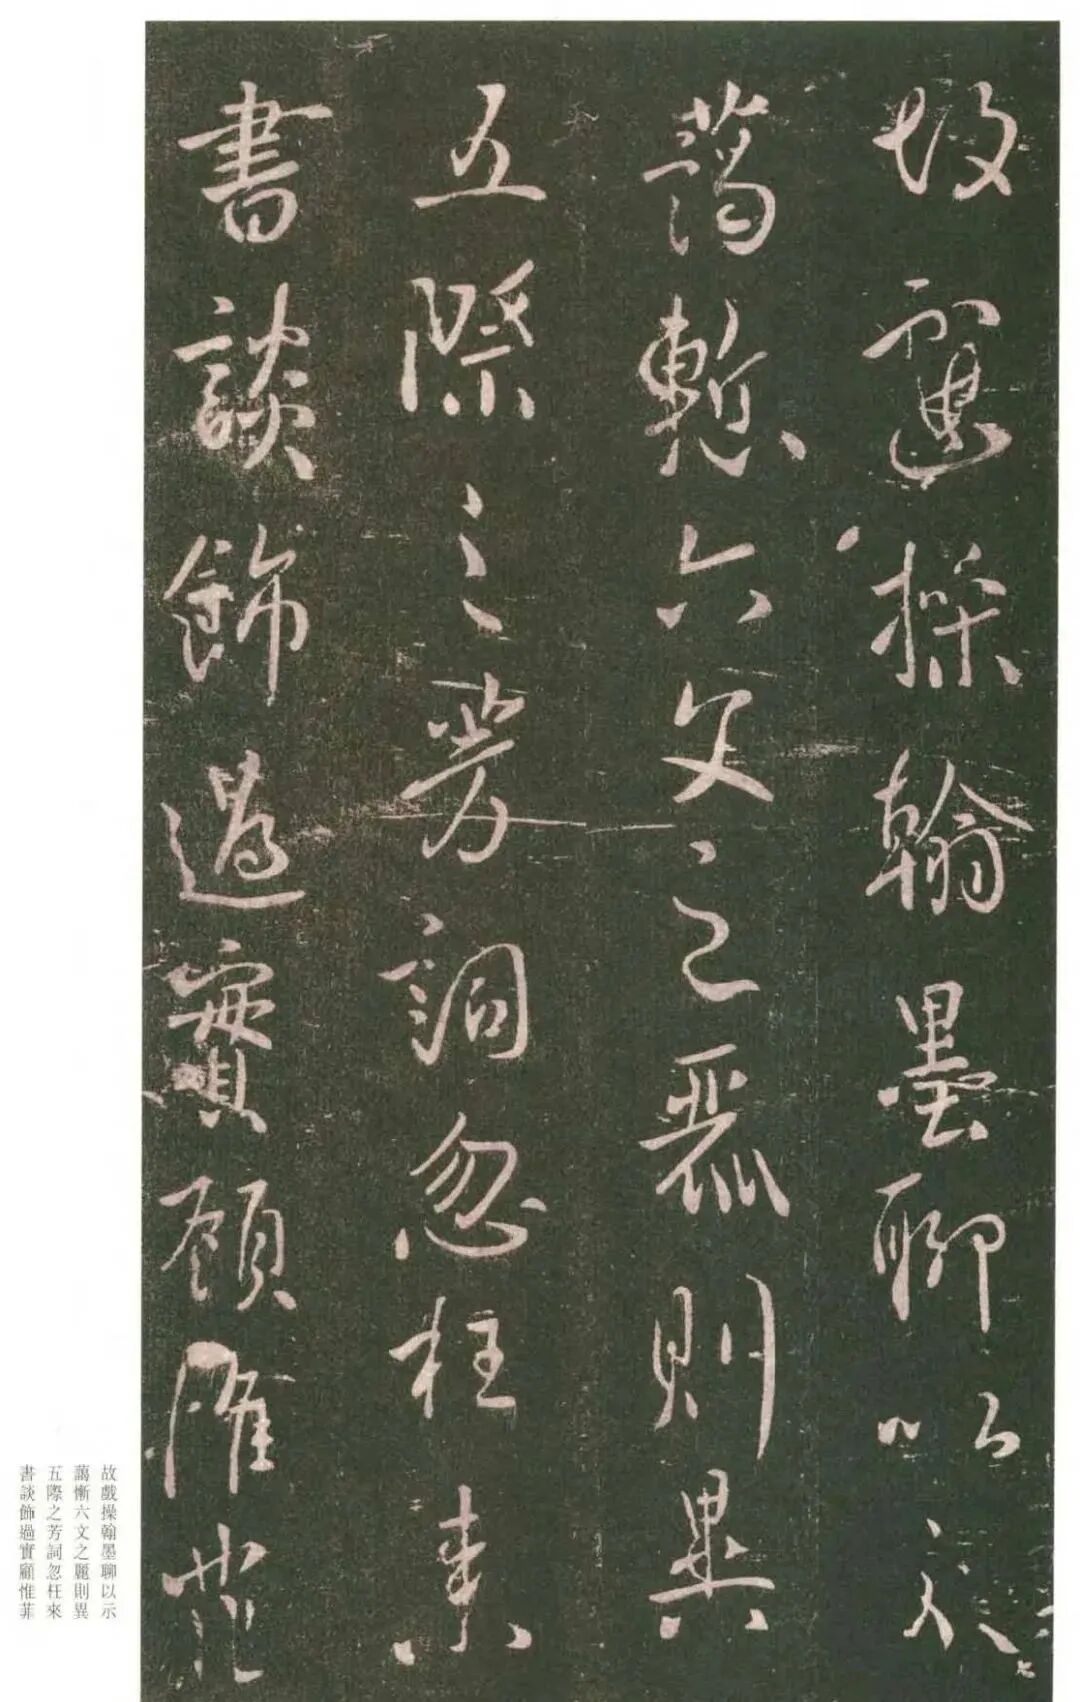 故戲操翰墨聊以示
藹慚六文之麗則異
五際之芳詞忽枉來
書談飾過實顧惟菲
故戲操翰墨聊以示
藹慚六文之麗則異
五際之芳詞忽枉來
書談飾過實顧惟菲